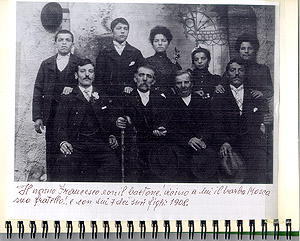 Il nonno Francesco con il bastone, vicino a lui il barba Mosca
suo fratello! e con lui 7 dei suoi figli 1908.